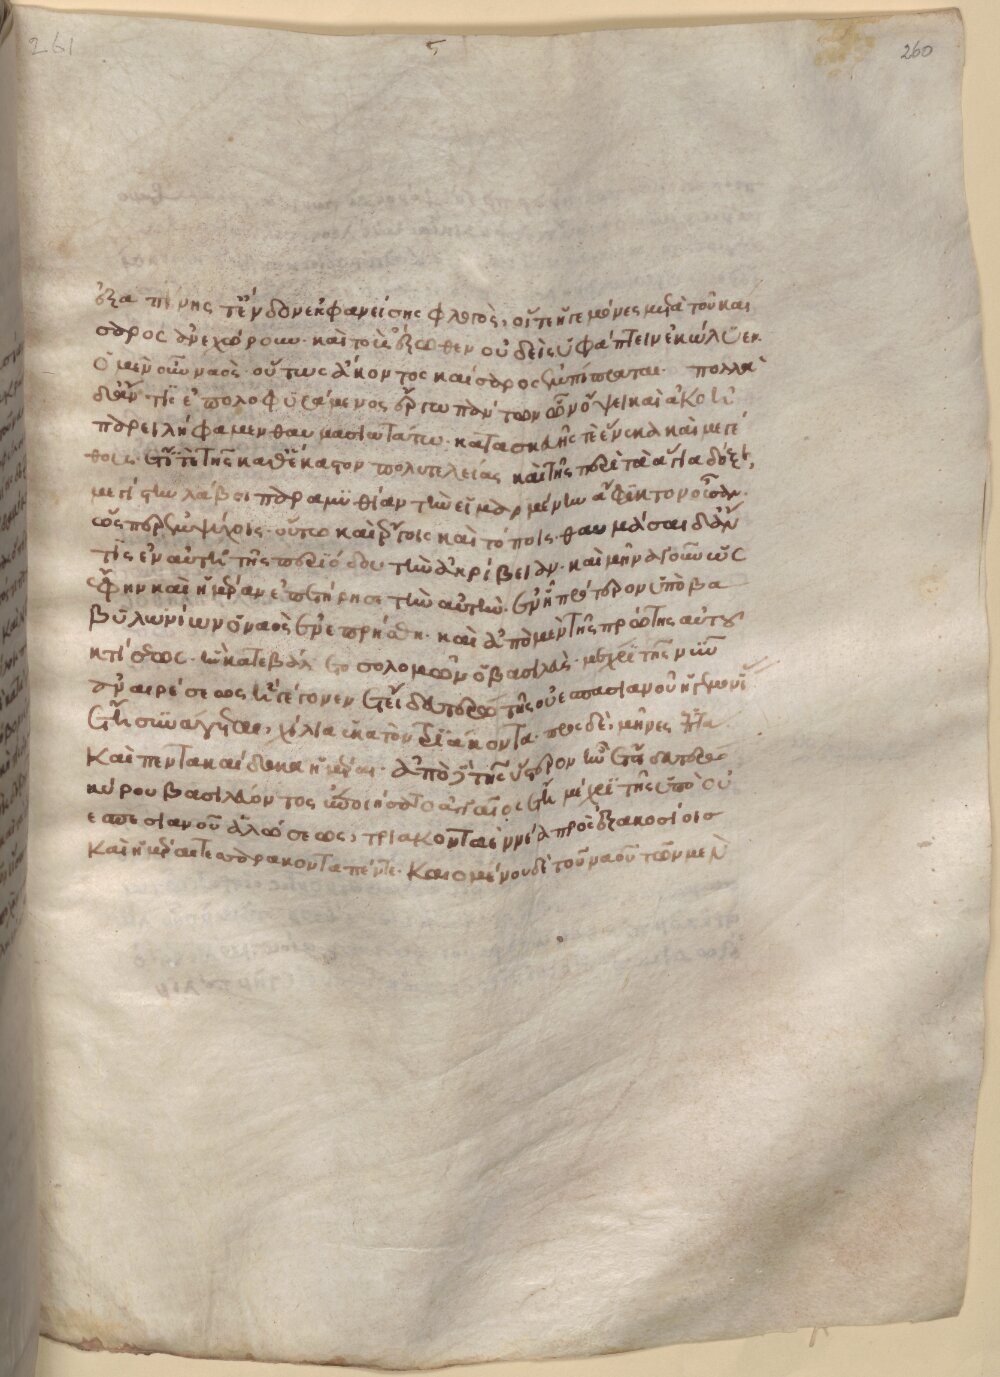 261
5
260
ἐξαπίνης τὲ ἔνδον ἐκφανείσης φλογὸς, οἵ τε ἡγεμόνες μετὰ τοῦ καί
σαρος ἀνεχώρουν· καὶ τοὺς ἔξωθεν οὐδεὶς ὑφάπτειν ἐκώλυεν·
ὁ μὲν οὖν ναὸς· οὕτως ἄκοντος καίσαρος ἐμπίπραται· πολλὰ
δ' ἄν τις ἐπολοφυράμενος ἔργω πάντων ὧν ὄψει καὶ ἀκοῆ
παρειλήφαμεν θαυμασιωτάτω· κατασκευῆς τὲ ἕνεκα καὶ μεγέ
θους· ἔτι τὲ τῆς καθέκαστον πολυτελείας καὶ τῆς περὶ τὰ ἅγια δόξης,
μεγίστην λάβοι παραμυθίαν τὴν εἱμαρμένην ἄφυκτον οὖσαν·
ὥσπερ ἐμψύχοις· οὕτω καὶ ἔργοις καὶ τόποις· θαυμάσαι δ' ἄν
τις ἐν αὐτῆ τῆς περιόδου τὴν ἀκρίβειαν· καὶ μῆνα γοῦν ὡς
ἔφην καὶ ἡμέραν ἐπετήρησε τὴν αὐτὴν· ἐν ἧ πρότερον ὑπὸ βα
βυλωνίων ὁ ναὸς ἐνεπρήσθη· καὶ ἀπὸ μὲν τῆς πρώτης αὐτοῦ
κτίσεως· ἣν κατεβάλετο σολομὼν ὁ βασιλεὺς· μέχρι τῆς νῦν
ἀναιρέσεως ἣ γέγονεν ἔτει δευτέρω τῆς οὐεσπασιανοῦ ἡγεμονίας
ἔτη συνάγεται, χίλια ἑκατὸν τριάκοντα· πρὸς δὲ, μῆνες ἑπτὰ
καὶ πεντακαίδεκα ἡμέραι· ἀπὸ δὲ τῆς ὕστερον ἣν ἔτει δευτέρω
κύρου βασιλεύοντος ἐποιήσατο ἀγγαῖος ἔτη μέχρι τῆς ὑπὸ οὐ
εσπεσιανοῦ ἁλώσεως, τριακονταεννέα πρὸς ἑξακοσίοις
καὶ ἡμέραι τεσσαρακονταπέντε· καιομένου δὲ τοῦ ναοῦ τῶν μὲν